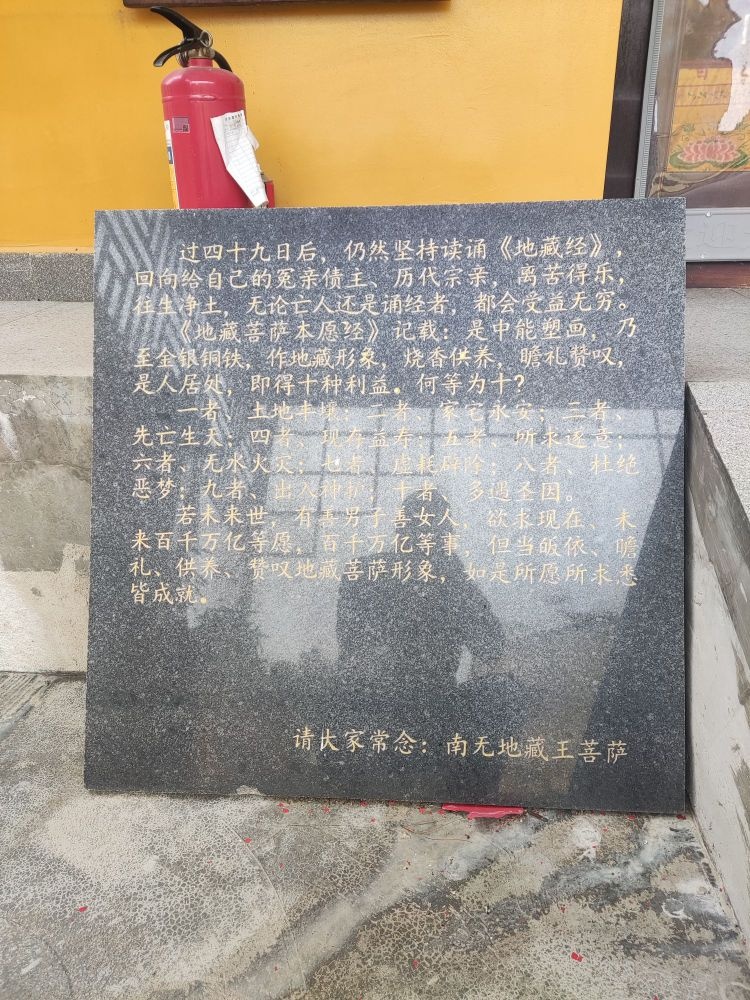 过四十九日后，仍然坚持读诵《地藏经》，
回向给自己的冤亲债主、历代宗亲，离苦得乐，
往生净土，无论亡人还是诵经者，都会受益无穷。
《地藏菩萨本愿经》记载：是中能塑画，乃
至金银铜铁，作地藏形象，烧香供养，瞻礼赞叹，
是人居处，即得十种利益。何等为十？
一者、土地丰壤；二者、家宅永安；三者、
先亡生天；四者、现存益寿；五者、所求遂意；
六者、无水火灾；七者、虚耗辟除；八者、杜绝
恶梦；九者、出入神护；十者、多遇圣因。
若未来世，有善男子善女人，欲求现在、未
来百千万亿等愿，百千万亿等事，但当皈依、瞻
礼、供养、赞叹地藏菩萨形象，如是所愿所求悉
皆成就。
请大家常念：南无地藏王菩萨